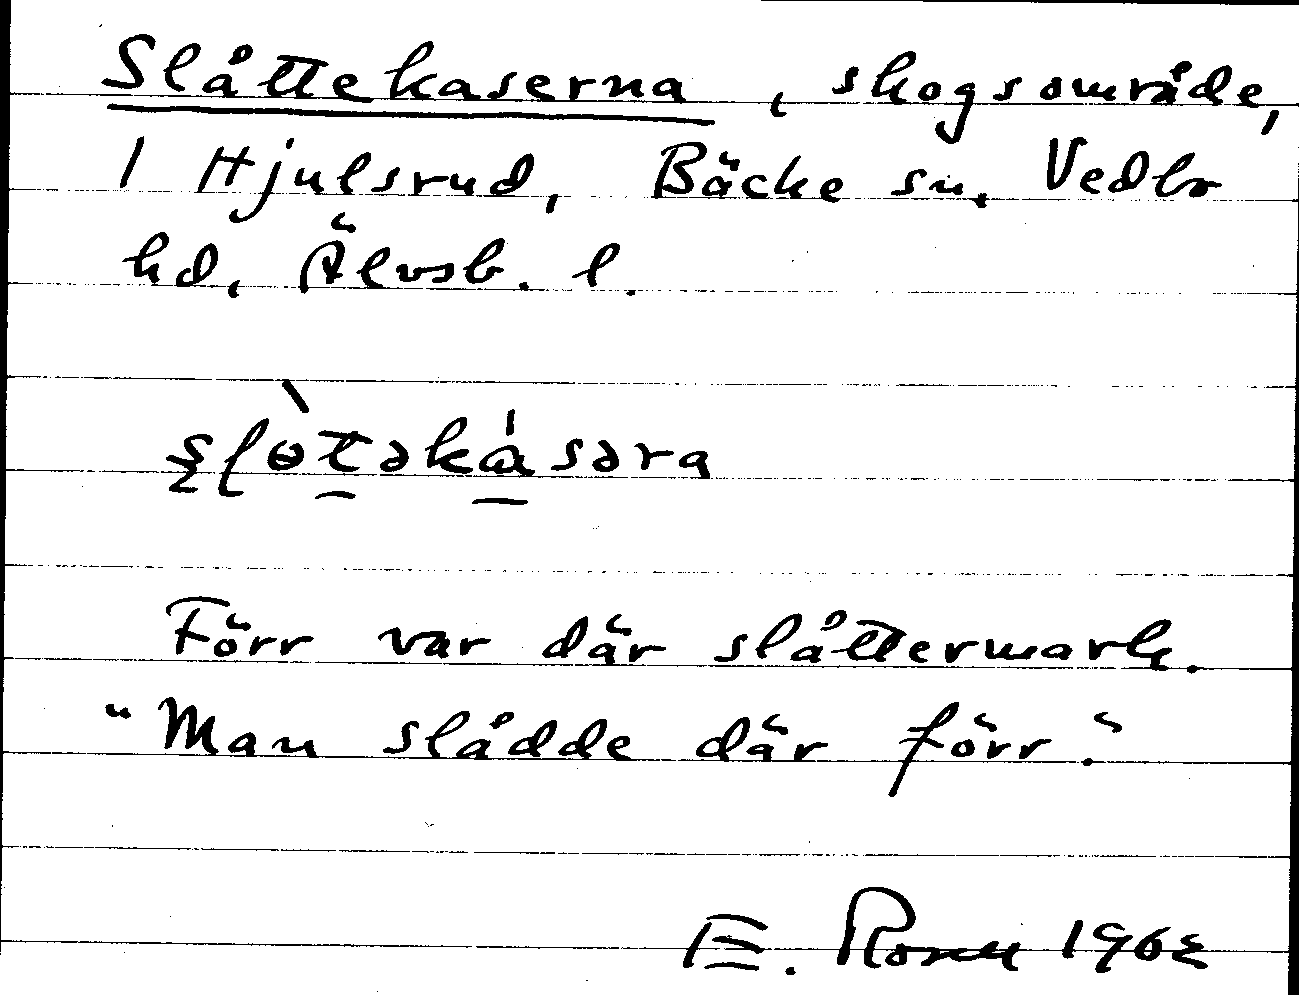 Slåttekaserna, skogsområde,
1 Hjulsrud, Bäcke sn, Vedbo
hd, Älvsb. l.
Förr var där slåttermark.
"Man slådde där förr."
E. 1962